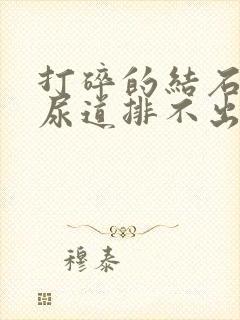 打碎的結石
尿道排不出
穆泰